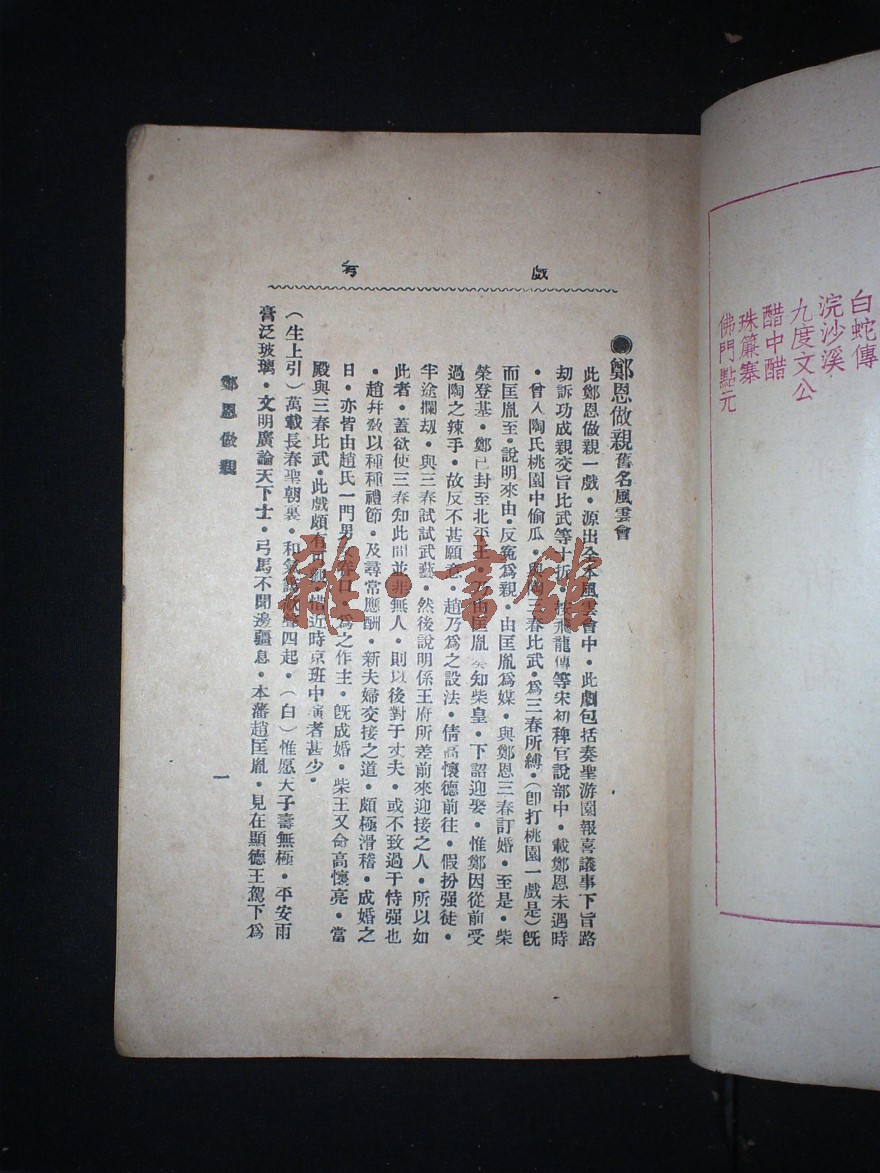 白蛇傳
浣沙溪
九度文公
醋中醋
珠簾寨
佛門點元
戲考
●鄭恩做親舊名風雲會
此鄭恩做親一戲•源出全本風雲會中•此劇包括奏聖游園報喜議事下旨路
刧訴功成親交旨比武等十折•按飛龍傳等宋初稗官說部中•載鄭恩未遇時
•曾入陶氏桃園中偷瓜•與陶三春比武•爲三春所縛•(卽打桃園一戲是)旣
而匡胤至•說明來由•反寃爲親•由匡胤爲媒•與鄭恩三春訂婚•至是•柴
榮登基•鄭已封至北平王•乃由匡胤奏知柴皇•下詔迎娶•惟鄭因從前受
過陶之辣手•故反不甚願意•趙乃爲之設法•倩高懷德前往•假扮强徒•
半途攔刼•與三春試試武藝•然後說明係王府所差前來迎接之人•所以如
此者•蓋欲使三春知此間並非無人•則以後對于丈夫•或不致過于恃强也
•趙幷敎以種種禮節•及尋常應酬•新夫婦交接之道•頗極滑稽•成婚之
日•亦皆由趙氏一門男 口•爲之作主•旣成婚•柴王又命高懷亮•當
殿與三春比武•此戲頗有可觀•惜近時京班中演者甚少•
(生上引)萬載長春聖朝裏•和氣 四起•(白)惟愿天子壽無極•平安雨
膏泛玻璃•文明廣論天下士•弓馬不聞邊疆息•本藩趙匡胤•見在顯德王駕下爲
鄭恩做親
一
雜•書館